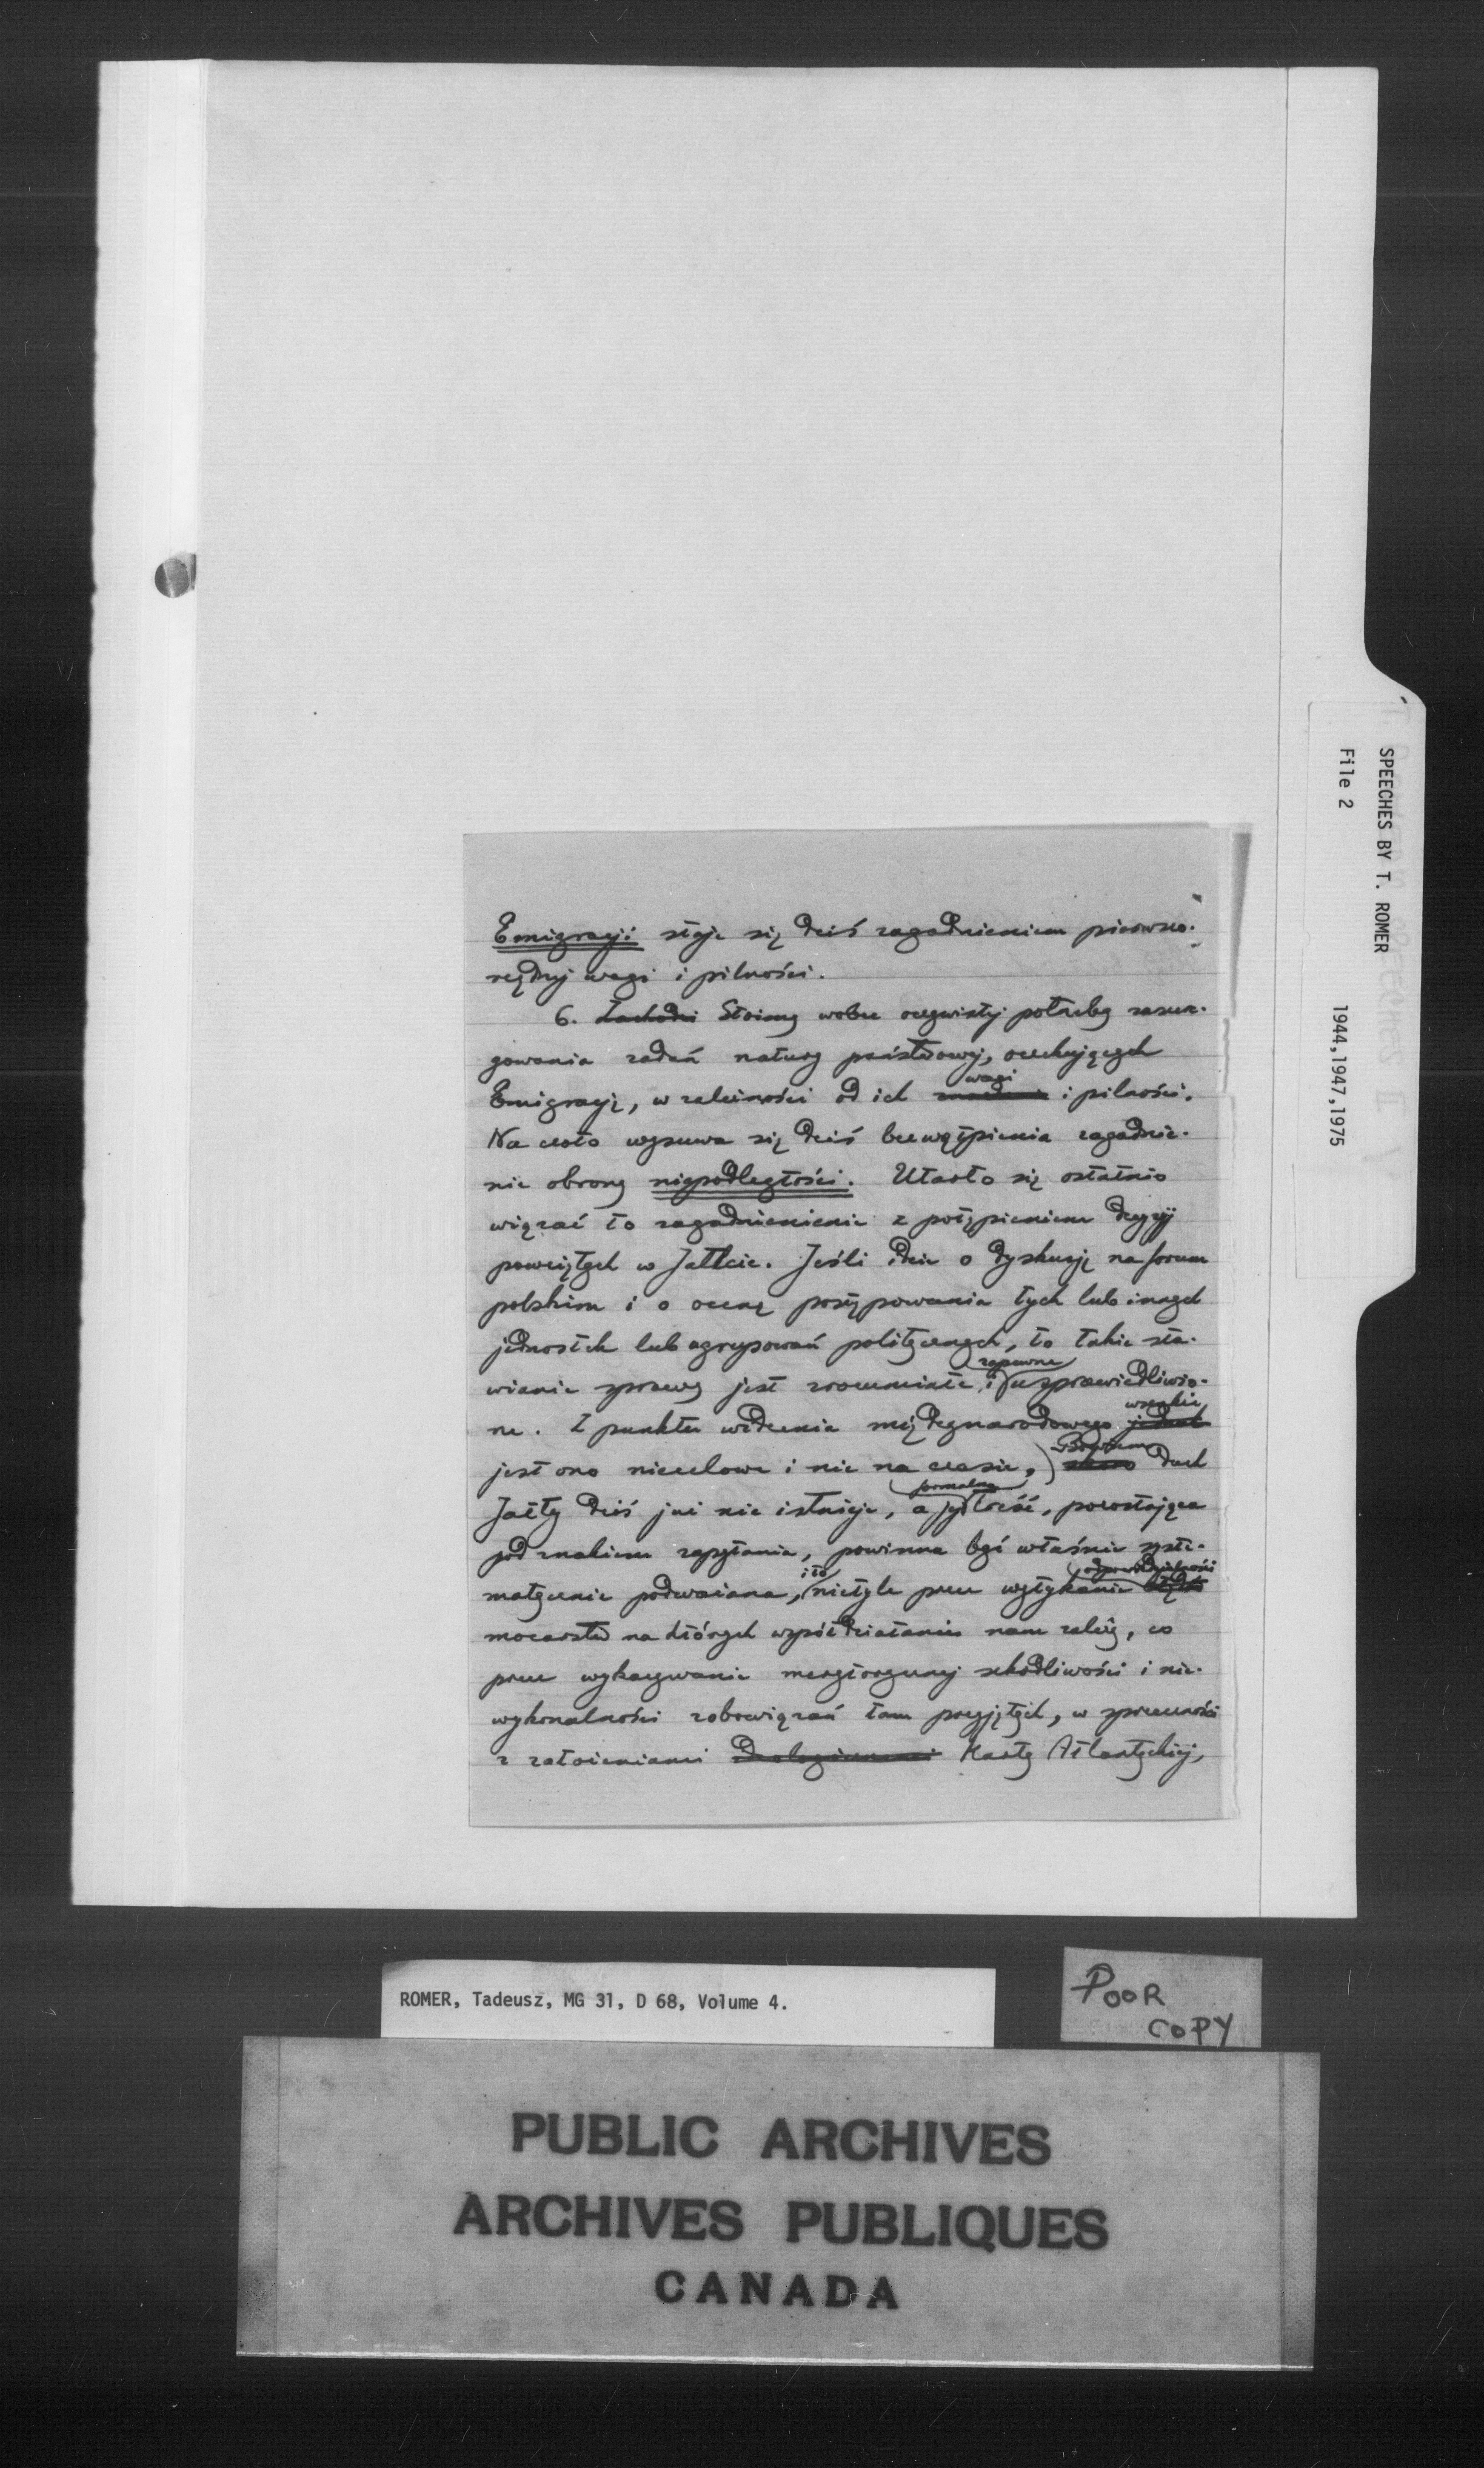 SPEECHES BY T. ROMER
File 2
1944,1947,1975
Emigracji staje się dziś zagadnieniem pierwszo-
rzędnej wagi i pilności.
6. Zachodzi Stoimy wobec oczywistej potrzeby zaszere-
gowania zadań natury państwowej, oczekujących
wagi
Emigrację, w zależności od ich i pilności.
Na czoło wysuwa się dziś bezwątpienia zagadnie-
nie obrony niepodległości. Utarło się ostatnio
wiązać to zagadnienienie z potępieniem decyzji
powziętych w Jałcie. Jeśli idzie o dyskusję na forum
polskim i o ocenę postępowania tych lub innych
jednostek lub ugrupowań politycznych, to takie sta-
zapewne
wianie sprawy jest zrozumiałe i usprawiedliwio-
wszakże
ne. Z punktu widzenia międzynarodowego jednak
Bowiem
jest ono niecelowe i nie na czasie, skoro duch
formalna
Jałty dziś już nie istnieje, a jej treść, pozostająca
pod znakiem zapytania, powinna być właśnie syste-
i to odpowiedzialności
matycznie podważana, nietyle przez wytykanie błędów
mocarstw na których współdziałaniu nam zależy, co
przez wykazywanie merytorycznej szkodliwości i nie-
wykonalności zobowiązań tam przyjętych, w sprzeczności
z założeniami Karty Atlantyckiej,
ROMER, Tadeusz, MG 31, D 68, Volume 4.
POOR
COPY
PUBLIC ARCHIVES
ARCHIVES PUBLIQUES
CANADA